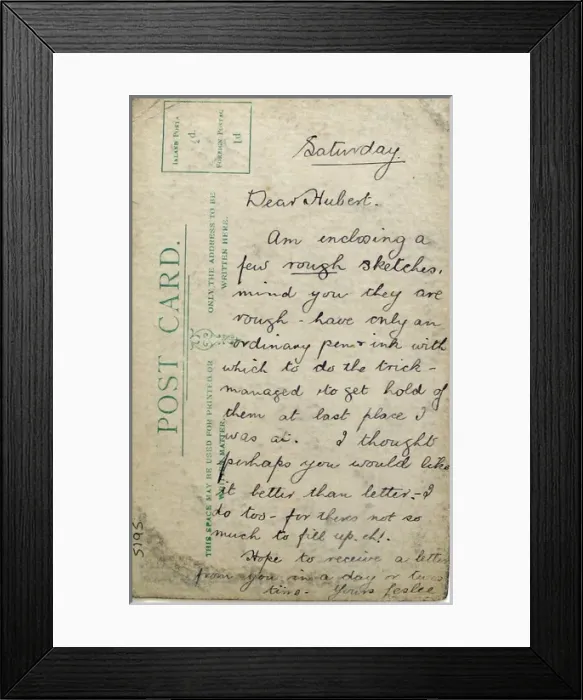 Saturday.
Dear Hubert.
Am enclosing a
few rough sketches.
mind you they are
rough - have only an
ordinary pen & ink with
which to do the trick -
managed to get hold of
them at last place I
was at. I thought
perhaps you would like
it better than letter - I
do too - for theres not so
much to fill up. eh!.
Hope to receive a letter
from you in a day or two's
time - Yours Leslie
POST CARD.
THIS SPACE MAY BE USED FOR PRINTED OR
WRITTEN MATTER.
ONLY THE ADDRESS TO BE
WRITTEN HERE.
INLAND POSTAGE
½d.
FOREIGN POSTAGE
1d
5195